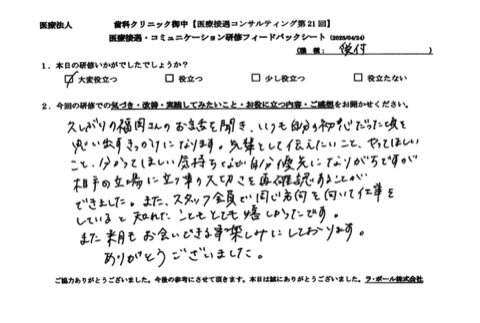 医療法人　　　　歯科クリニック御中【医療接遇コンサルティング第21回】
医療接遇・コミュニケーション研修フィードバックシート（2025/04/24）
（職種：受付）
1．本日の研修いかがでしたでしょうか？
☑大変役立つ　□役立つ　□少し役立つ　□役立たない
2．今回の研修での気づき・改善・実践してみたいこと・お役に立つ内容・ご感想をお聞かせください。
久しぶりの福岡さんのお話を聞き、いつも自分の初心だった頃を
思い出すきっかけになります。先輩として伝えたいこと、やってほしい
こと、分かってほしい気持ちなど自分優先になりがちですが
相手の立場に立つ事の大切さを再確認することが
できました。また、スタッフ全員で同じ方向を向いて仕事を
していると知れたこともとても嬉しかったです。
また来月もお会いできる事楽しみにしております。
ありがとうございました。
ご協力ありがとうございました。今後の参考にさせて頂きます。本日は誠にありがとうございました。ラ・ポール株式会社